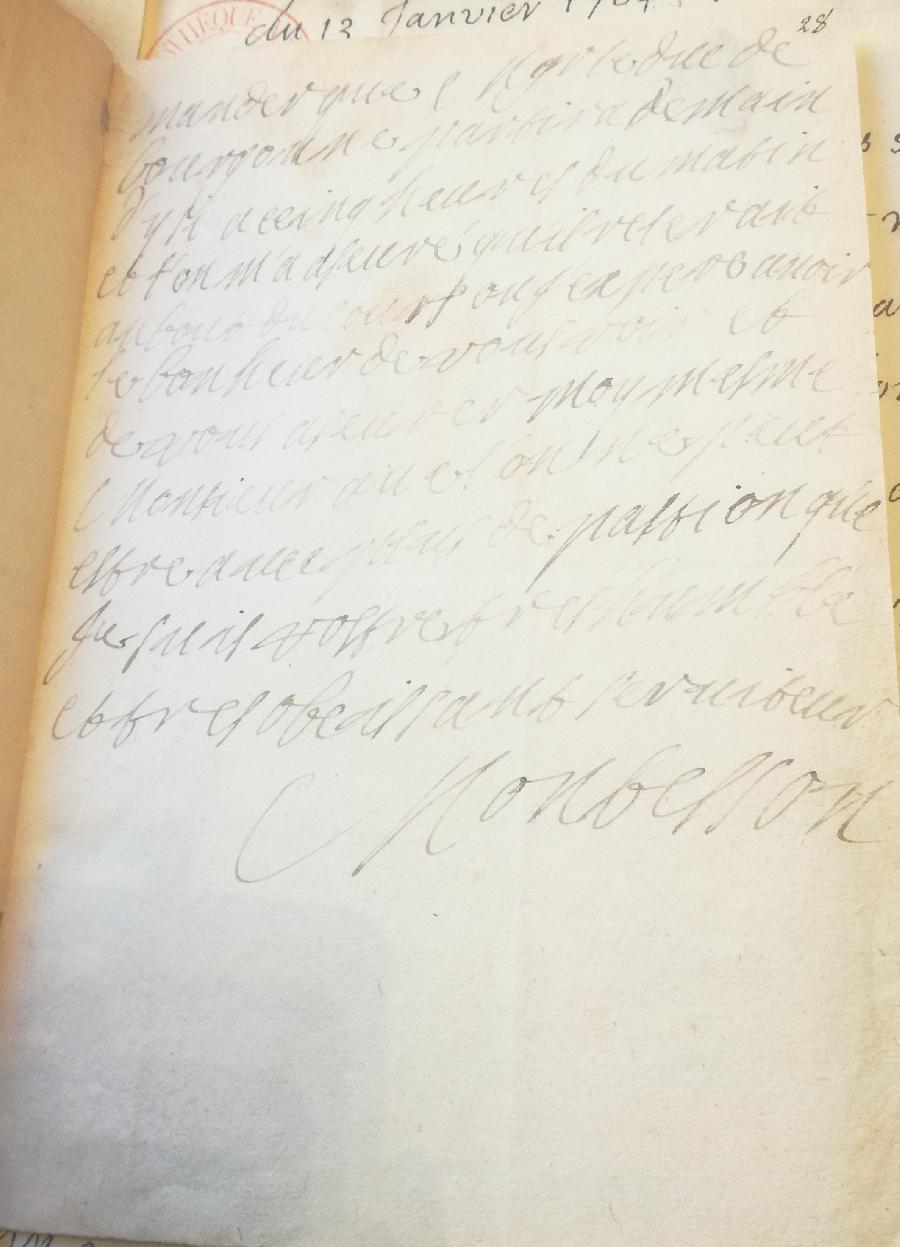 du 12 Janvier 17
28
mander que Mgr le duc de
bourgonne partira demain
d'ysi a cinq heures du matin
et l'on m'a aseuré qu'il seterait
au bout du cours ou j'espere avoir
le bonheur de vous voir et
de vous aseurer moy mesme
Monsieur que l'on ne peut
estre avec plus de passion que
Je suis vostre tres humble
et tres obeissant serviteur
Monbesson